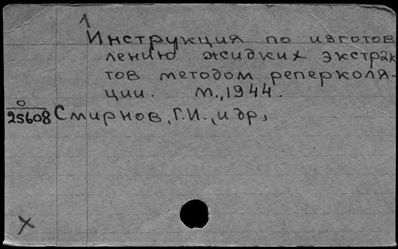 1
Инструкция по изготов
лению жидких экстрак
тов методом реперколя-
ции. М., 1944.
о
25608 Смирнов, Г.И., и др,
X